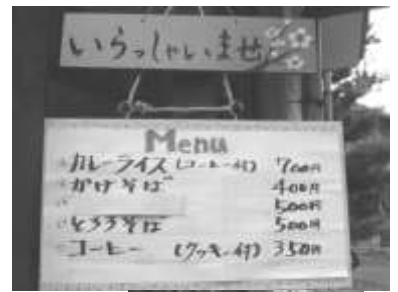 いらっしゃいませ
Menu
カレーライス (コーヒー付) 700円
かけそば 400円
500円
とろろそば 500円
コーヒー (クッキー付) 350円